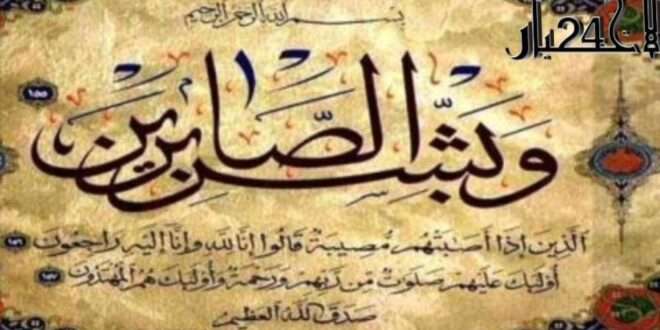 بسم الله الرحمن الرحيم
الاخ24بار
وبشر الصابرين ١٥٥
الذين إذا أصابتهم مصيبة قالوا إنا لله وإنا إليه راجعون ١٥٦
أولئك عليهم صلوات من ربهم ورحمة وأولئك هم المهتدون ١٥٧
صدق الله العظيم